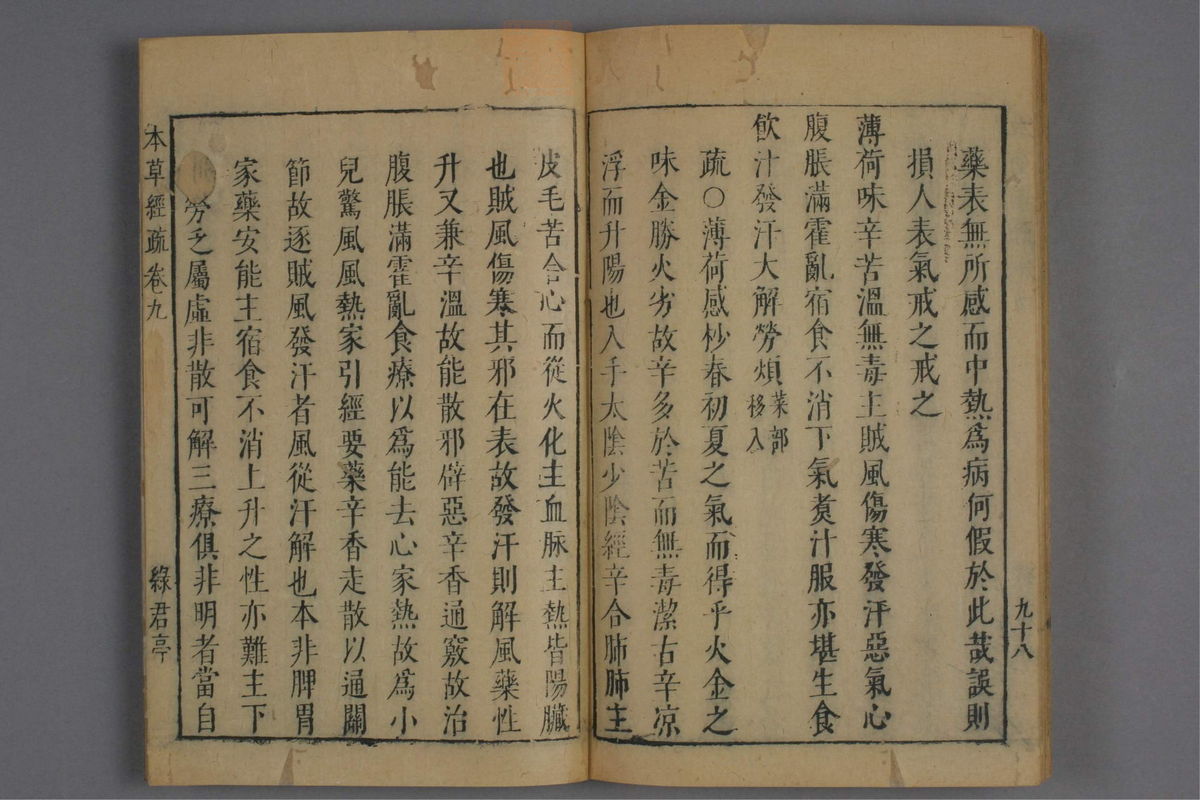 九十八
藥表無所感而中熱爲病何假於此哉誤則
損人表氣戒之戒之
薄荷味辛苦溫無毒主賊風傷寒發汗惡氣心
腹脹滿霍亂宿食不消下氣煑汁服亦堪生食
飲汁發汗大解勞煩菜部移入
疏○薄荷感杪春初夏之氣而得乎火金之
味金勝火劣故辛多於苦而無毒潔古辛凉
浮而升陽也入手太陰少陰經辛合肺肺主
皮毛苦合心而從火化主血脉主熱皆陽臟
也賊風傷寒其邪在表故發汗則解風藥性
升又兼辛溫故能散邪僻惡辛香通竅故治
腹脹滿霍亂食療以爲能去心家熱故爲小
兒驚風風熱家引經要藥辛香走散以通關
節故逐賊風發汗者風從汗解也本非脾胃
家藥安能主宿食不消上升之性亦難主下
勞乏屬虛非散可解三療俱非明者當自
本草經疏卷九
綠君亭